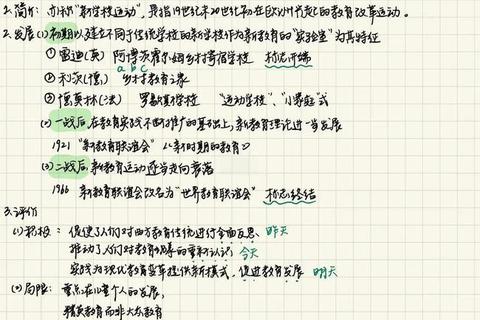 1.简介: 亦称"新学校运动",是指19世纪末20世纪初在欧洲兴起的教育改革运动。
2.发展(1)初期以建立不同于传统学校的新学校作为新教育的"实验室"为其特征
①雷迪(英) 阿博茨霍尔姆乡村寄宿学校 标志开端
a b c
②利茨(德) 乡村教育之家
③德莫林(法) 罗歇斯学校 "运动学校"、"小家庭"式
(2)一战后,在教育实践不断推广的基础上,新教育理论进一步发展
1921 "新教育联谊会" 《新时期的教育》
(3)二战后,新教育运动逐步走向衰落
1966 新教育联谊会改名为"世界教育联谊会" 标志终结
3.评价
(1)积极: 促使了人们对西方教育传统进行全面反思、昨天
推动了人们对教育现象的重新认识; 今天
实践为现代教育变革提供新模式,促进教育发展 明天
(2)局限: 重点在儿童个人的发展,
精英教育而非大众教育